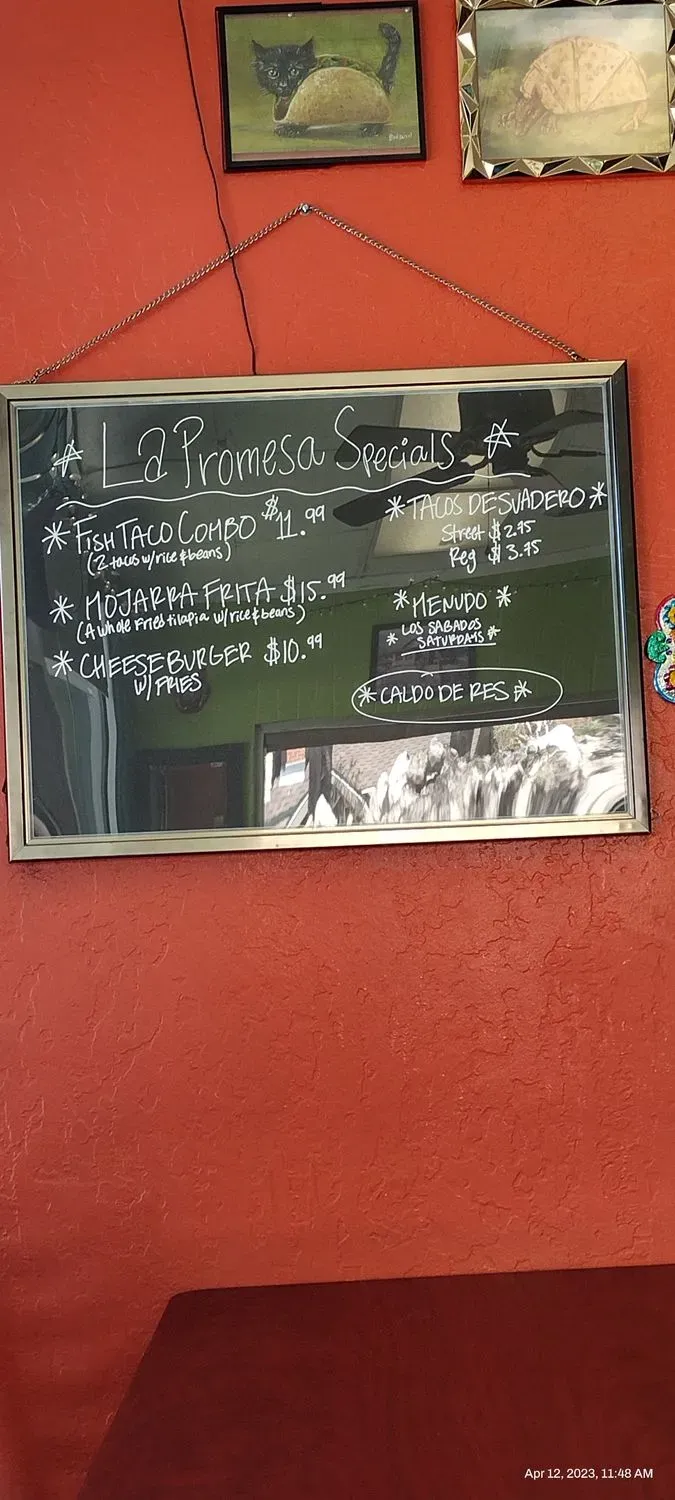 La Promesa Specials
* FISH TACO COMBO $11.99
(2 tacos w/rice & beans)
* MOJARRA FRITA $15.99
(A whole Fried tilapia w/rice & beans)
* CHEESEBURGER $10.99
W/ FRIES
* TACOS DESUADERO *
Street $2.75
Reg $3.75
* MENUDO *
LOS SABADOS
* SATURDAYS *
* CALDO DE RES *
Apr 12, 2023, 11:48 AM